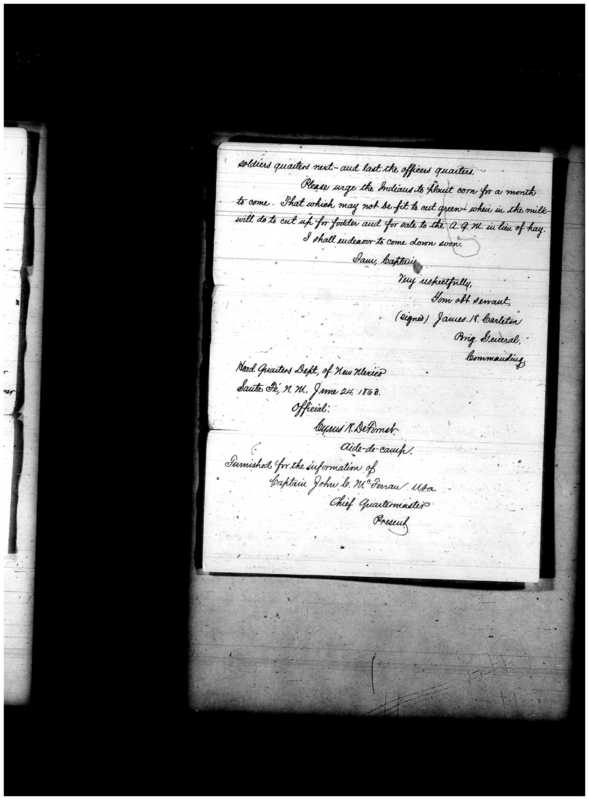 soldiers quarters next - and last the officers quarters.
Please urge the Indians to plant corn for a month
to come. That which may not be fit to eat green - when in the milk -
will do to cut up for fodder and for sale to the A. Q. M. in lieu of hay.
I shall endeavor to come down soon.
I am, Captain,
Very respectfully,
Your obt servant,
(signed) James H. Carleton
Brig General,
Commanding
Head Quarters Dept, of New Mexico
Santa Fé, N. M. June 24, 1863.
Official:
Cyrus H. De Forrest
Aide-de-camp.
Furnished for the information of
Captain John C. McFerran USA
Chief Quartermaster
Present